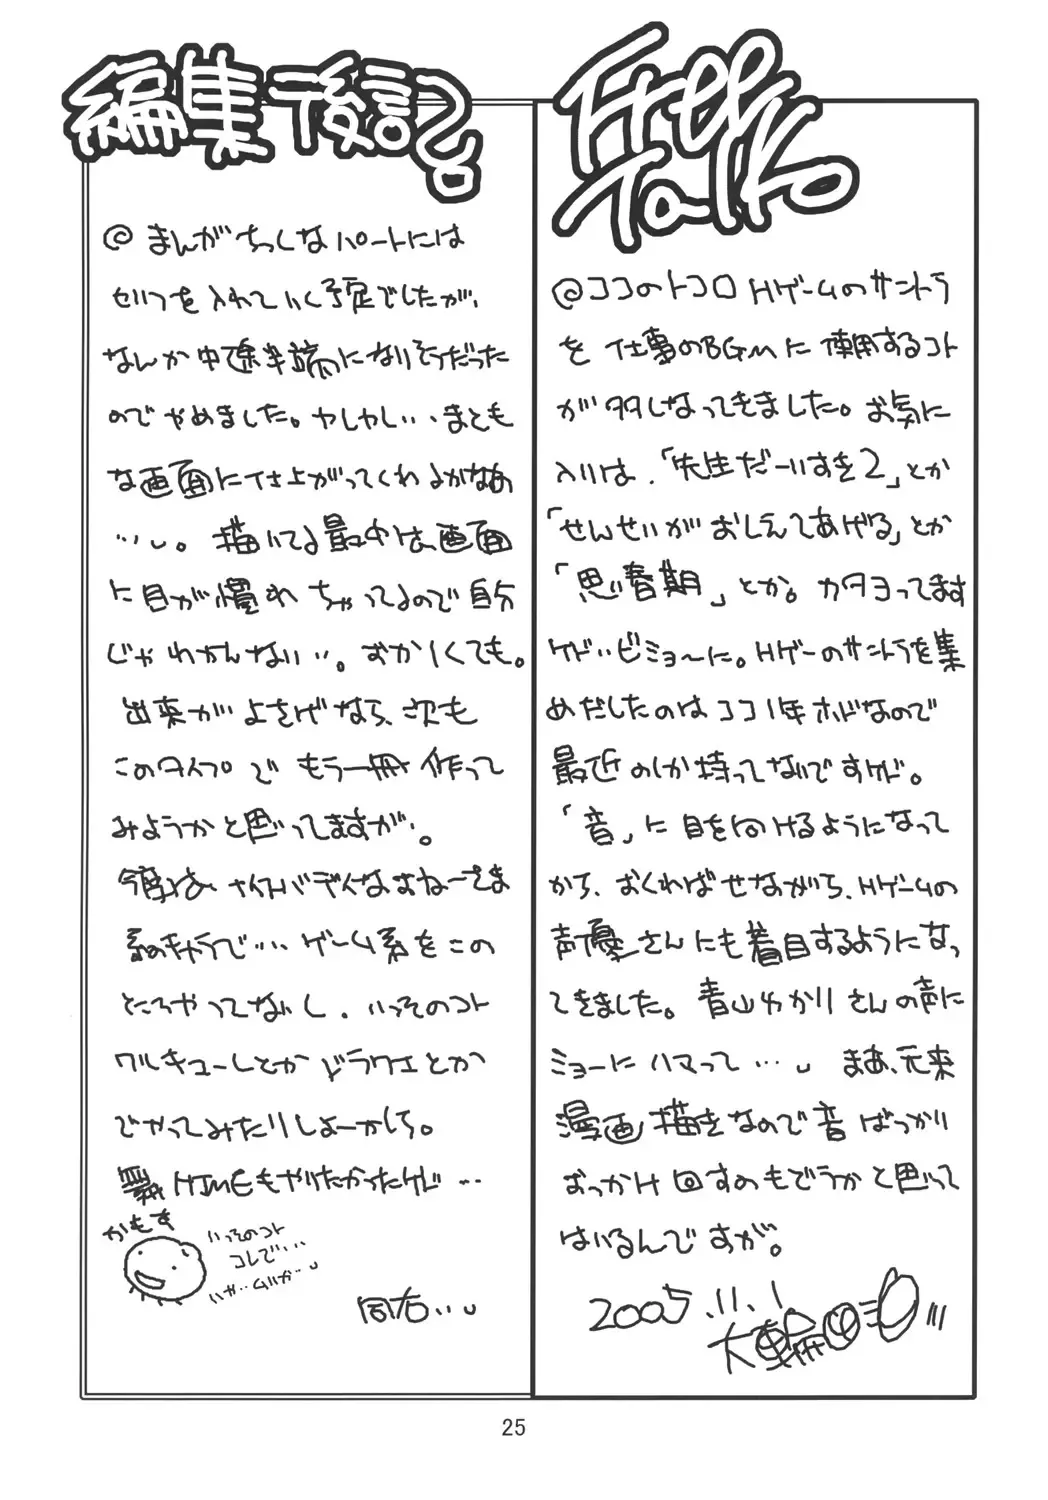 編集後記
@まんがちっしなパートには
セリフを入れていく予定でしたが、
なんか中途半端になりそうだった
のでやめました。ヤしヤし…、まとも
な画面に仕上がってくれるかなぁ
…。描いてる最中は、画面
に目が慣れちゃってるので自分
じゃわかんない…。おかしくても。
出来がよさげなら、次も
このタイプでもう一冊作って
みようかと思ってますが。
今度は、ナイスバディなおねーさま
系のキャラで…、ゲーム系をこの
ところやってないし、いっそのコト
ワルキューレとかドラクエとか
でやってみたりしよーかしら。
舞HIMEもやりたかったけど…
かもす
いっそのコト
コレで…
いや…ムリか…
同右…
Free
Talk。
@ココのトコロHゲームのサントラ
を仕事のBGMに使用するコト
が多しなってきました。お気に
入りは、「先生だーいすき2」とか
「せんせいがおしえてあげる」とか
「思春期」とか。カタヨってます
ケド…ビミョ〜に。Hゲーのサントラを集
めだしたのはココ1年ホドなので
最近のしか持ってないですけど。
「音」に目を向けるようになって
から、おくればせながら、Hゲームの
声優さんにも着目するようになっ
てきました。青山ゆかりさんの声に
ミョーにハマって…
まぁ、元来
漫画描きなので音ばっかり
おっかけ回すのもどうかと思って
はいるんですが。
2005.11.1
大輪
25